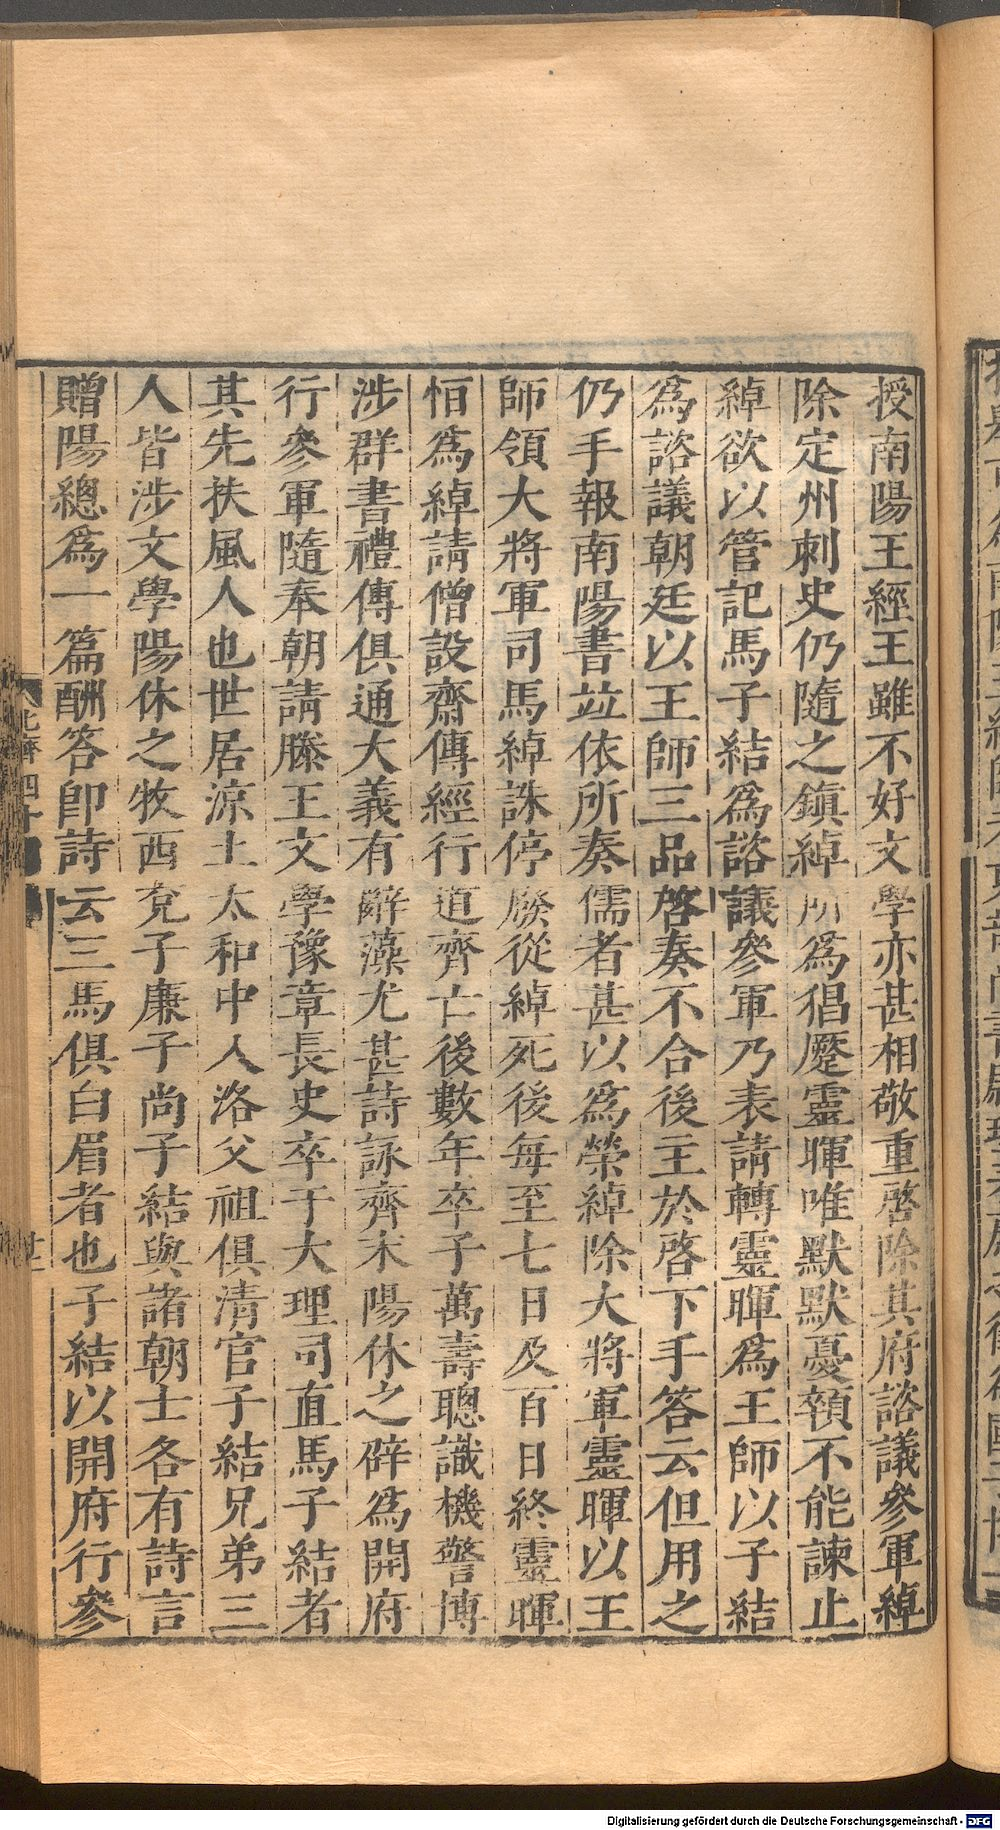 授南陽王經王雖不好文學亦甚相敬重啓除其府諮議參軍綽
除定州刺史仍隨之鎮綽所爲猖蹷靈暉唯默默憂頞不能諫止
綽欲以管記馬子結爲諮議參軍乃表請轉靈暉爲王師以子結
爲諮議朝廷以王師三品啓奏不合後主於啓下手答云但用之
仍手報南陽書並依所奏儒者甚以爲榮綽除大將軍靈暉以王
師領大將軍司馬綽誅停廢從綽死後每至七日及百日終靈暉
恒爲綽請僧設齋傳經行道齊亡後數年卒子萬壽聰識機警博
涉群書禮傳俱通大義有辭藻尤甚詩詠齊末陽休之辟爲開府
行參軍隨奉朝請滕王文學豫章長史卒于大理司直馬子結者
其先扶風人也世居涼土太和中入洛父祖俱清官子結兄弟三
人皆涉文學陽休之牧西兗子廉子尚子結與諸朝士各有詩言
贈陽總爲一篇酬答即詩云三馬俱白眉者也子結以開府行參
Digitalisierung gefördert durch die Deutsche Forschungsgemeinschaft - DFG